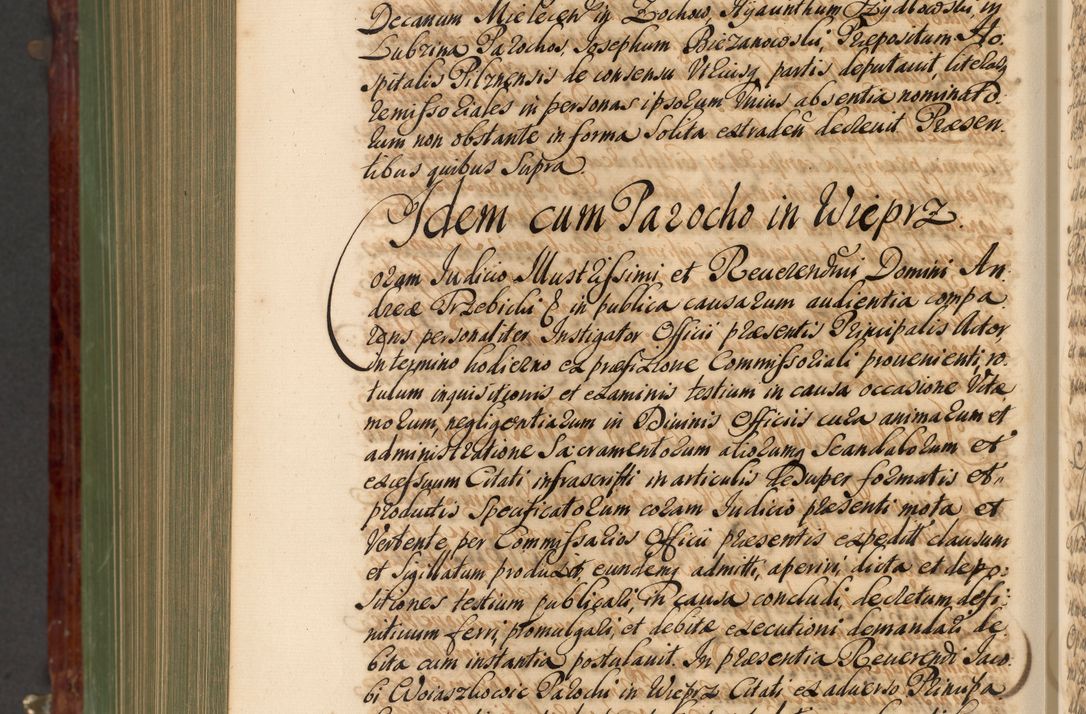 Decanum Mieleien in Zochow, Hyacinthum Szydłowski, in
Lubzina Parochos, Josephum Bieżanowski, Præpositum Ho-
spitalis Pilznensis de consensu Utriusq partis deputavit, literasq
remissoriales in personas ipsorum Unius absentia nominato-
rum non obstante in forma solita extraden decrevit Præsen-
tibus quibus supra
Idem cum Parocho in Wieprz.
Coram Judicio Illustrissimi et Reverendmi Domini An-
dreæ Trzebicki & in publica causarum audientia compa
rens personaliter Instigator Officii præsentis Principalis Actor,
in termino hodierno ex præfixione Commissoriali provenienti, ro-
tulum inquisitionis et examinis testium in causa occasione Vitæ
morum, negligentiarum in Divinis Officiis cura animarum et
administratione Sacramentorum aliorumq Scandalorum et
excessuum Citati infrascripti in articulis desuper formatis et
productis specificatorum coram Judicio præsenti mota et
Vertente, per Commissarios Officii præsentis expeditt clausum
et sigillatum produxit, eundemq admitti, aperiri, dicta et depo-
sitiones testium publicari, in causa concludi, decretum defi-
nitivum ferri, promulgari, et debitæ executioni demandari de-
bita cum instantia postulavit. In præsentia Reverendi Jaco
bi Woiaszkowic Parochi in Wieprz Citati ex adverso Principa